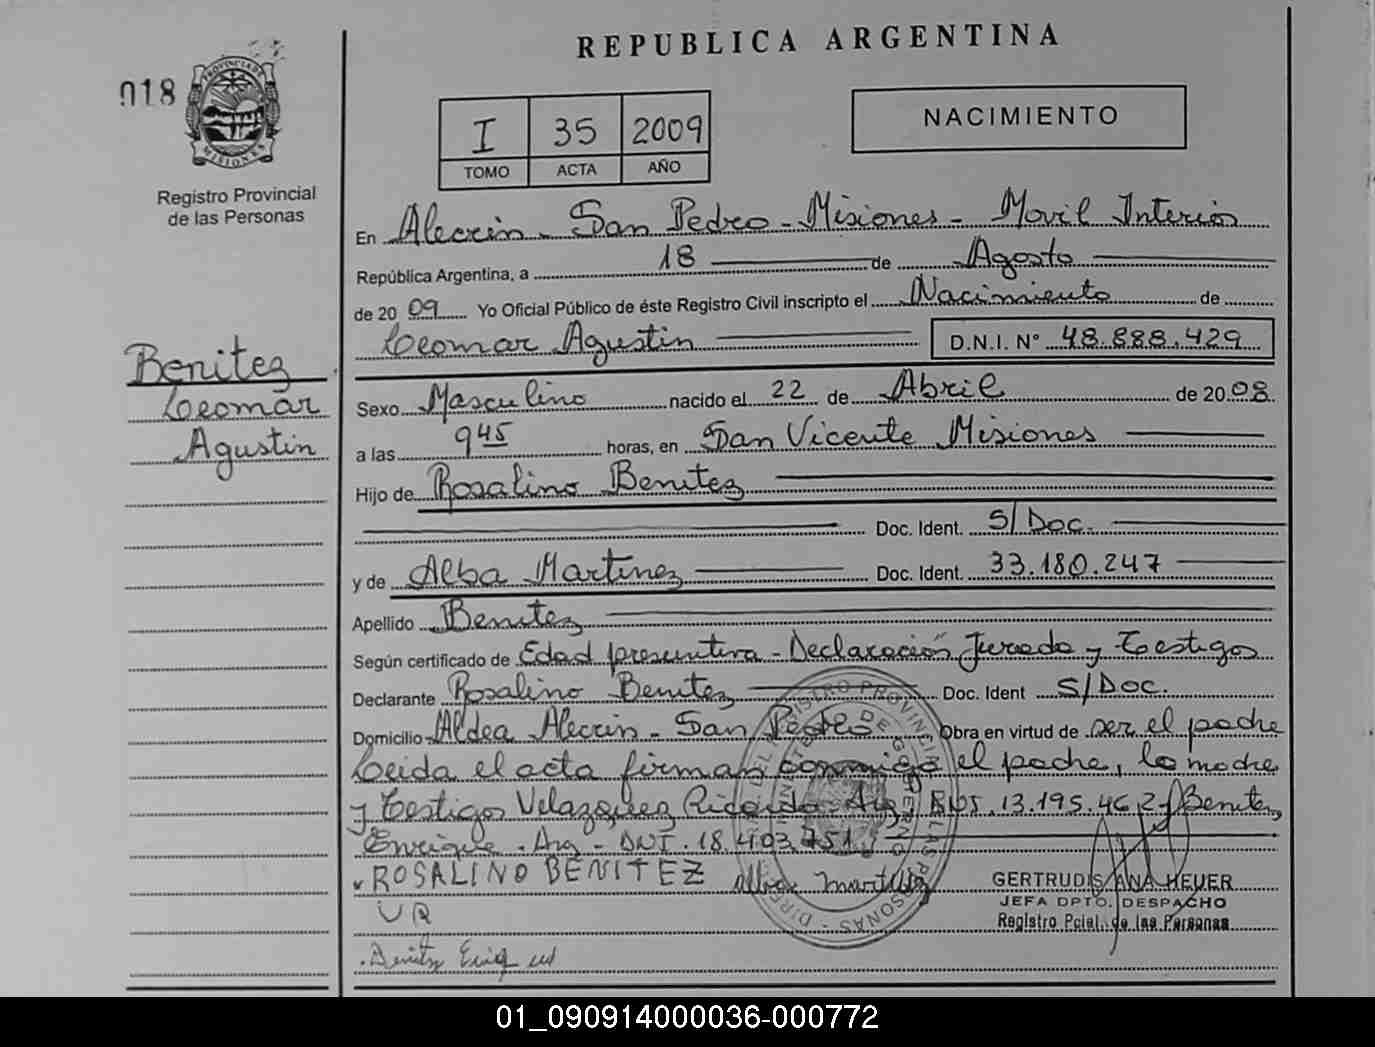 REPUBLICA ARGENTINA
018
PROVINCIA DE MISIONES
Registro Provincial
de las Personas
I 35 2009
TOMO ACTA AÑO
NACIMIENTO
En Alecrin - San Pedro - Misiones - Movil Interior
República Argentina, a 18 de Agosto
de 2009 Yo Oficial Público de éste Registro Civil inscripto el Nacimiento de
Leomar Agustin D.N.I. N° 48.888.429
Benitez
Leomar
Agustin
Sexo Masculino nacido el 22 de Abril de 2008
a las 9 45 horas, en San Vicente Misiones
Hijo de Rosalino Benitez
Doc. Ident. S/Doc.
y de Alba Martinez Doc. Ident. 33.180.247
Apellido Benitez
Según certificado de Edad presuntiva - Declaración Jurada y Testigos
Declarante Rosalino Benitez Doc. Ident S/Doc.
Domicilio Aldea Alecrin - San Pedro Obra en virtud de ser el padre
Leida el acta firman conmigo el padre, la madre
y Testigos Velazquez Ricardo - Arg DNI. 13.195.462 y Benitez
Enrique - Arg - DNI. 18.403.751
ROSALINO BENITEZ
VR
GERTRUDIS ANA HEUER
JEFA DPTO. DESPACHO
Registro Pcial. de las Personas
01_090914000036-000772